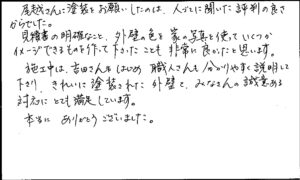 尾越さんに塗装をお願いしたのは、人づてに聞いた評判の良さ
からでした。
見積書の明確なこと、外壁の色を家の写真を使っていくつか
イメージできるものを作って下さったことも非常に良かったと思います。
施工中は、吉田さんをはじめ職人さんも分かりやすく説明して
下さり、きれいに塗装された外壁で、みなさんの誠意ある
対応にとても満足しています。
本当にありがとうございました。